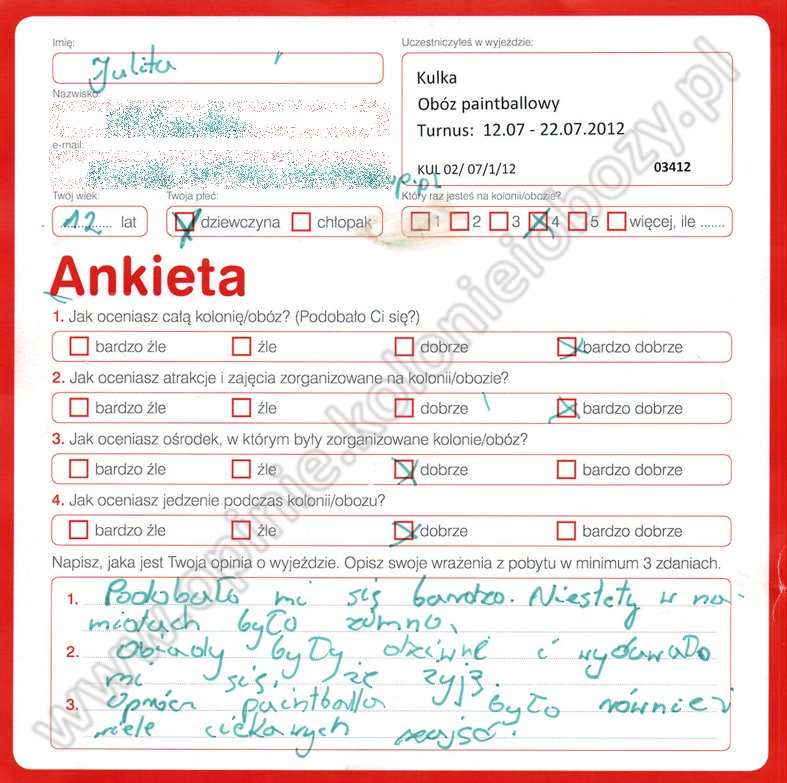 Imię:
Julita
Uczestniczyłeś w wyjeździe:
Kulka
Obóz paintballowy
Turnus: 12.07 - 22.07.2012
KUL 02/ 07/1/12 03412
Nazwisko:
e-mail:
p.pl
Twój wiek:
12 lat
Twoja płeć:
dziewczyna chłopak
Który raz jesteś na kolonii/obozie?
1 2 3 4 5 więcej, ile .......
Ankieta
1. Jak oceniasz całą kolonię/obóz? (Podobało Ci się?)
bardzo źle źle dobrze bardzo dobrze
2. Jak oceniasz atrakcje i zajęcia zorganizowane na kolonii/obozie?
bardzo źle źle dobrze bardzo dobrze
3. Jak oceniasz ośrodek, w którym były zorganizowane kolonie/obóz?
bardzo źle źle dobrze bardzo dobrze
4. Jak oceniasz jedzenie podczas kolonii/obozu?
bardzo źle źle dobrze bardzo dobrze
Napisz, jaka jest Twoja opinia o wyjeździe. Opisz swoje wrażenia z pobytu w minimum 3 zdaniach.
1. Podobało mi się bardzo. Niestety w na-
miotach było zimno.
2. Obiady były dziwne i wydawało
mi się, że żyją.
3. Oprócz paintballa było również
wiele ciekawych zajęć.
www.opinie.kolonieiobozy.pl